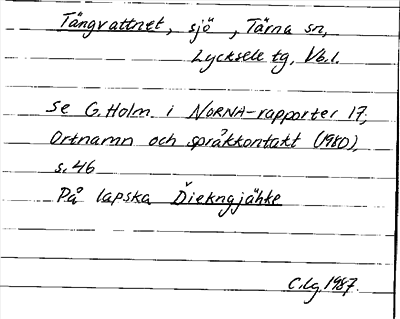 Tängvattnet, sjö, Tärna sn,
Lycksele tg, Vb.l.
se G. Holm i NORNA-rapporter 17,
Ortnamn och språkkontakt (1980),
s. 46
På lapska Ďiekngjähke
C.Lg. 1987.